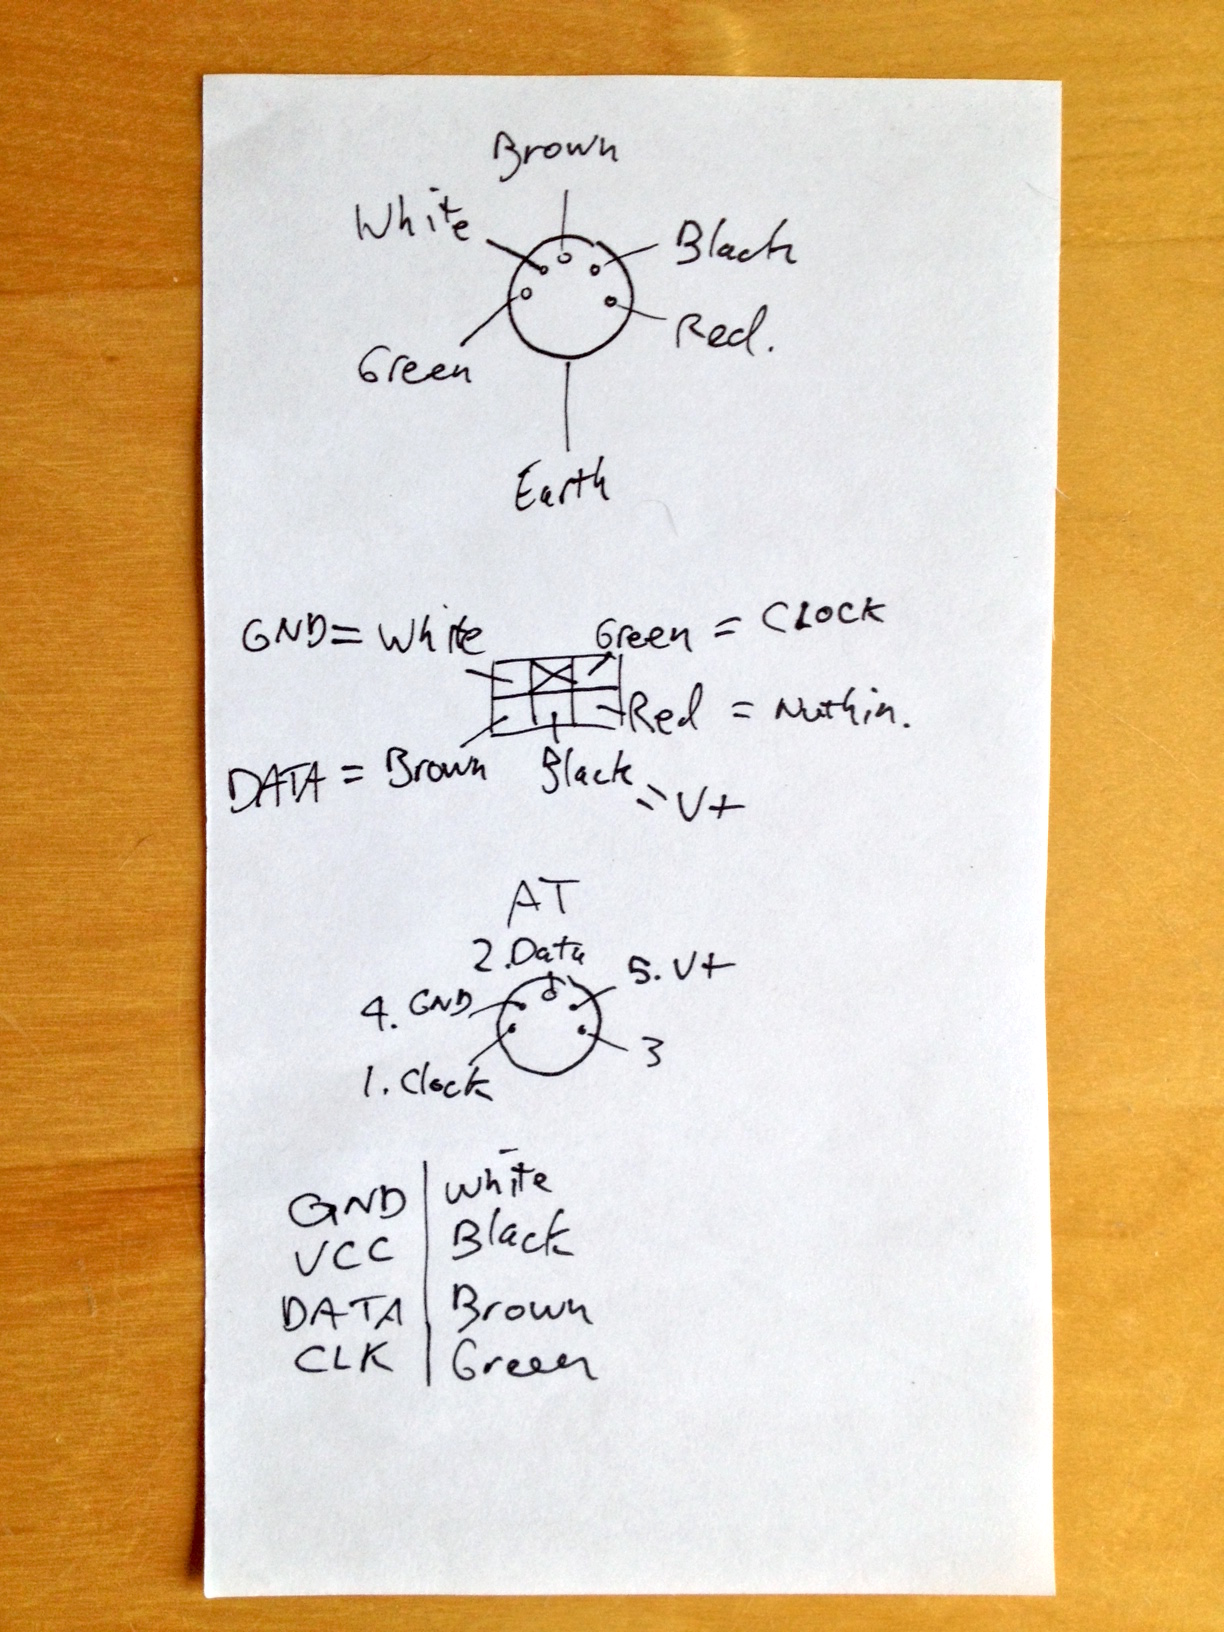 Brown
White
Black
Green
Red.
Earth
GND = White
Green = CLOCK
Red = Nuthin.
DATA = Brown
Black = V+
AT
2. Data
5. V+
4. GND
3
1. Clock
GND | White
VCC | Black
DATA | Brown
CLK | Green